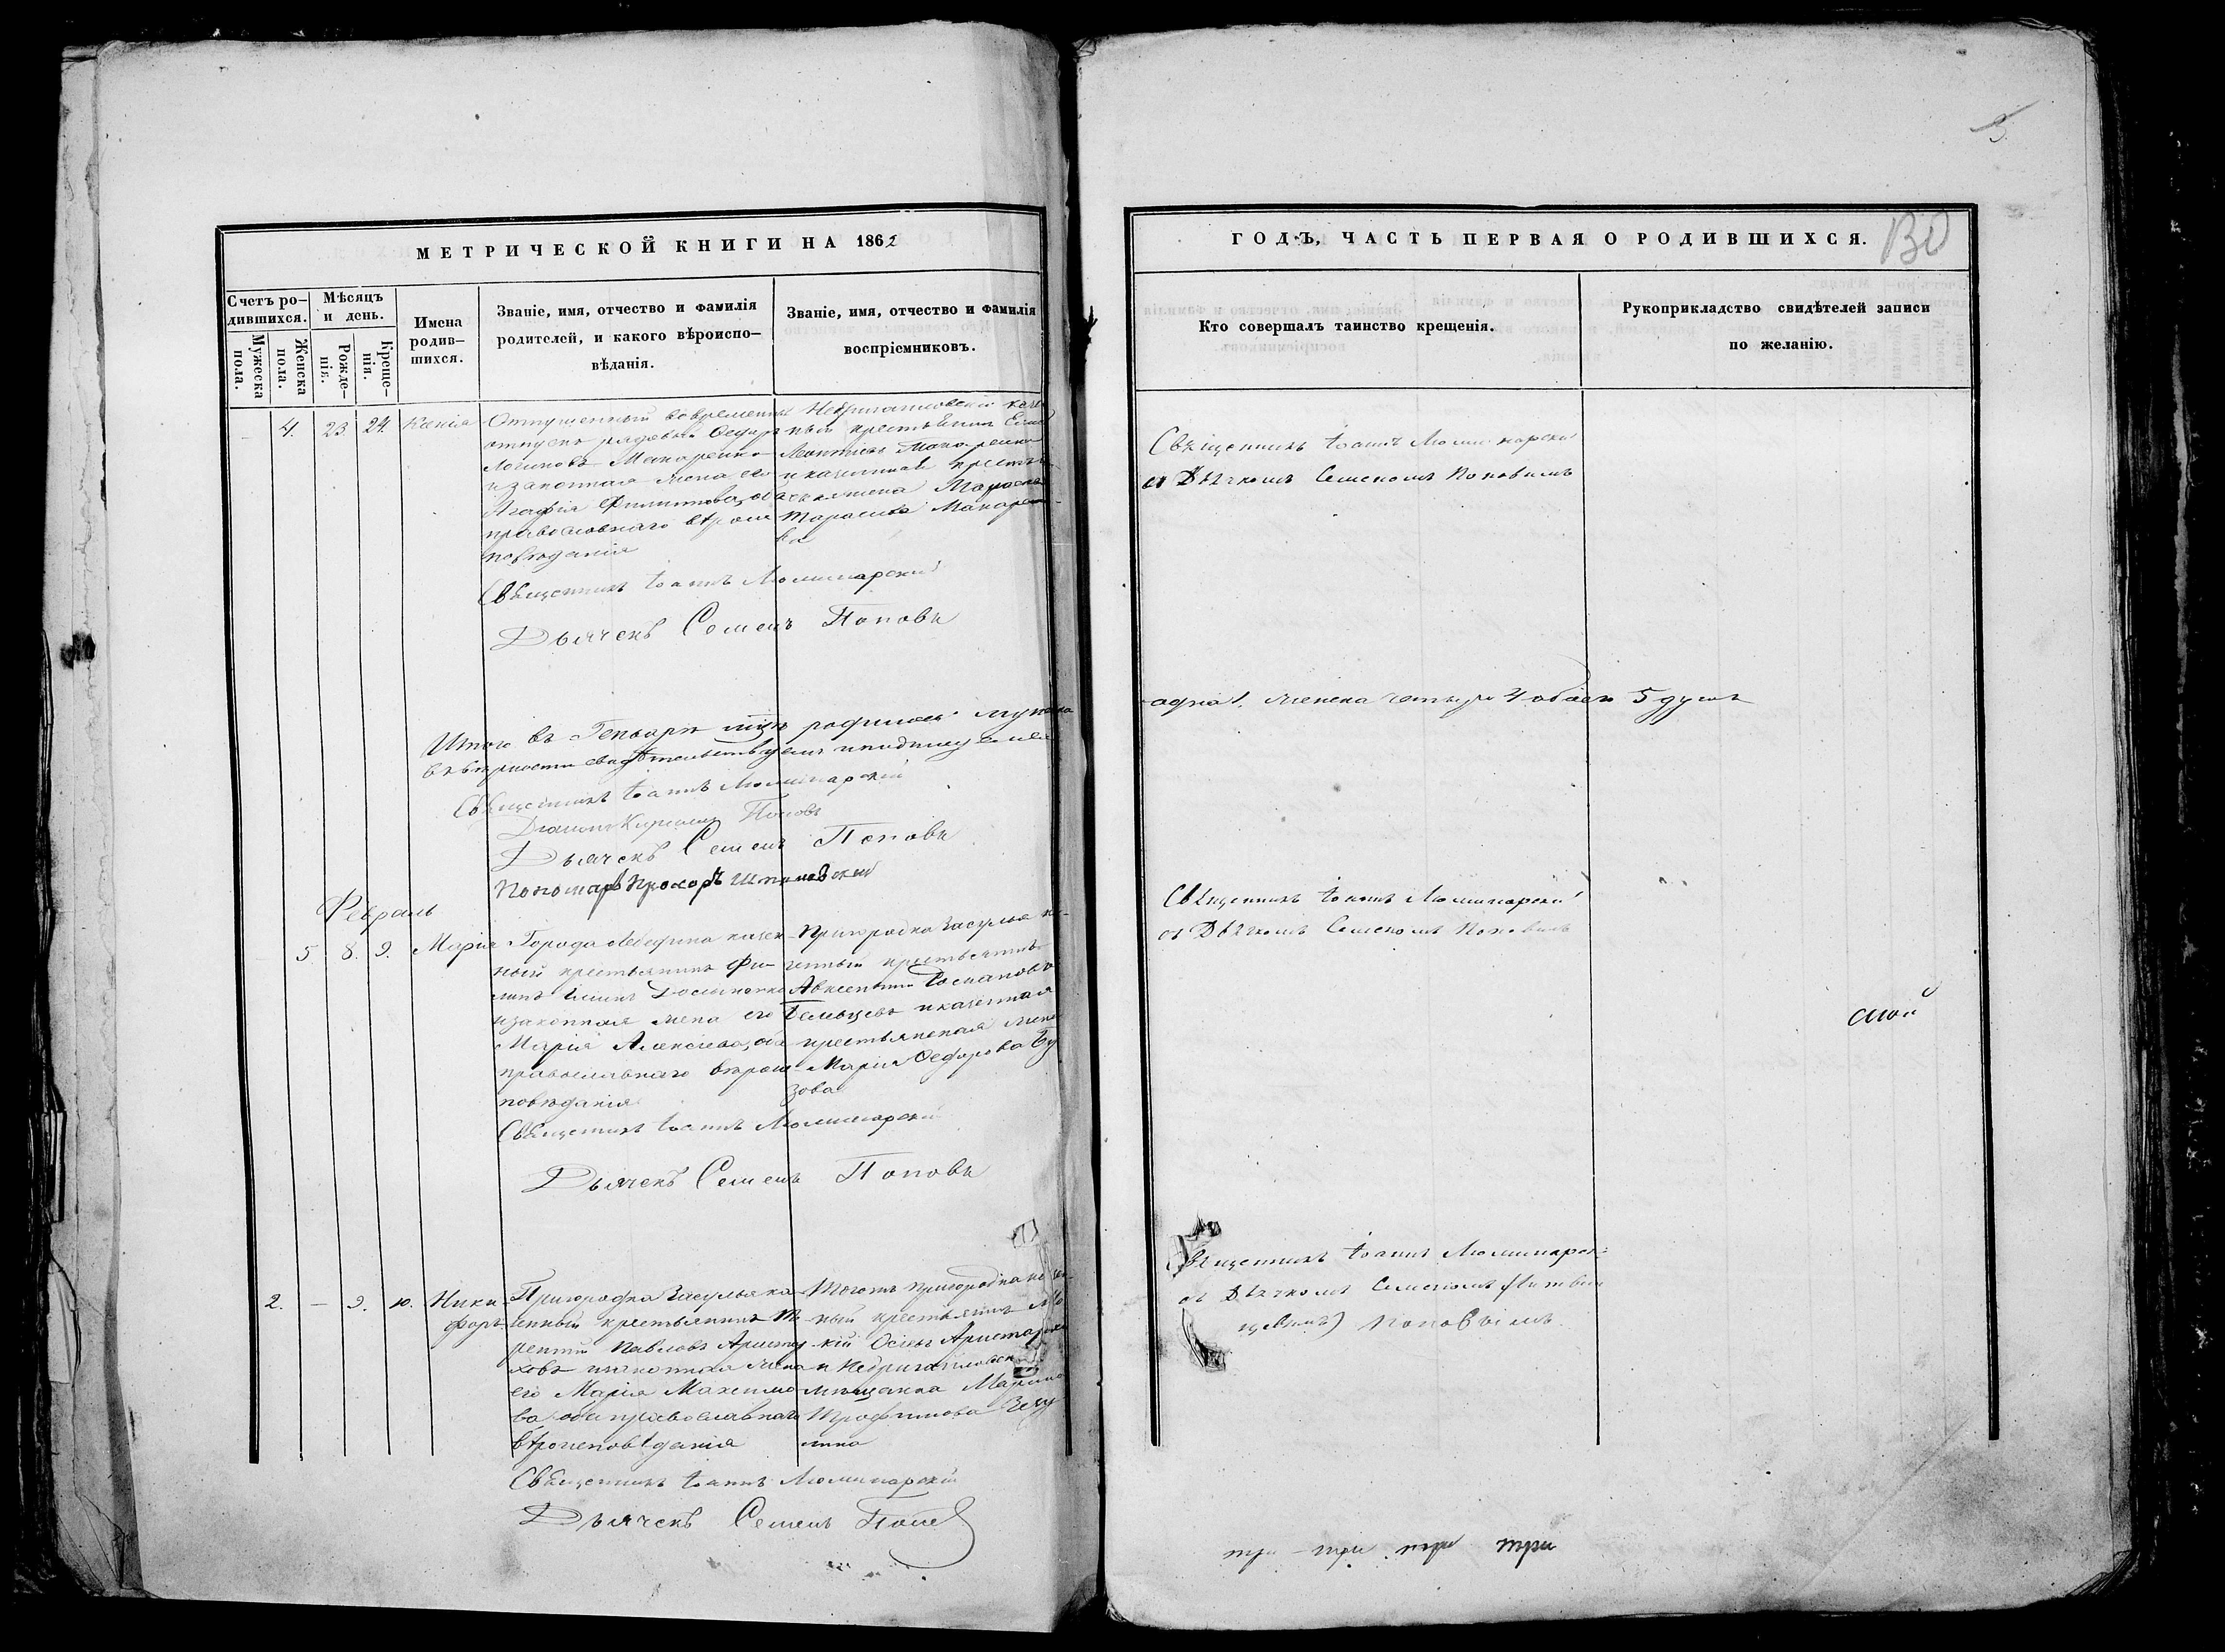 3.
МЕТРИЧЕСКОЙ КНИГИ НА 1862
Счетъ ро-
дившихся.
Мужеска
пола.
Женска
пола.
Мѣсяцъ
и день.
Рожде-
нія.
Креще-
нія.
Имена
родив-
шихся.
Званіе, имя, отчество и фамилія
родителей, и какого вѣроиспо-
вѣданія.
Званіе, имя, отчество и фамилія
воспріемниковъ.
4. 23. 24. Ксенія
Отпущенный вовременный
отпускъ рядовый Ѳедоръ
Логиновъ Макаренко
и законная жена его
Агафія Филиппова, оба
православнаго вѣроис
повѣданія
Недригайловскій казен
ный крестьянинъ
Макаренко
и казенная крестья
нская жена
Тарасова Макарен
ко
Священникъ Іоаннъ Люминарскій
Дьячекъ Семенъ Поповъ
Итого въ Генварѣ мцѣ родилось мужеска
вѣрности свидѣтельствуемъ и подписуемся
Священникъ Іоаннъ Люминарскій
Діаконъ Кириллъ Поповъ
Дьячекъ Семенъ Поповъ
Пономарь Прохоръ
Февраль
5 8. 9. Марія
Города Лебедина казен
ный крестьянинъ Фи
липъ
и законная жена его
Марія Алексѣева, оба
православнаго вѣроис
повѣданія
Пригородка Засулья ка
зенный крестьянинъ
Авксентій
и казенная
крестьянская жена
Марія Ѳедорова Бу
зова
Священникъ Іоаннъ Люминарскій
Дьячекъ Семенъ Поповъ
2. – 9. 10. Ники
форъ
Пригородка Засулья ка
зенный крестьянинъ Те
рентій Павловъ Аристар
ховъ и законная жена
его Марія Максимо
ва оба православнаго
вѣроисповѣданія
Тогожъ пригородка казен
ный крестьянинъ Мо
кій Осіевъ Аристархо
и Недригайловская
мѣщанка Марина
Трофимова
Священникъ Іоаннъ Люминарскій
Дьячекъ Семенъ Поповъ
ГОДЪ, ЧАСТЬ ПЕРВАЯ О РОДИВШИХСЯ.
Кто совершалъ таинство крещенія.
Рукоприкладство свидѣтелей записи
по желанію.
Священникъ Іоаннъ Люминарскій
съ Дьячкомъ Семеномъ Поповымъ
одна 1. женска четыре 4 обоего 5 душъ
Священникъ Іоаннъ Люминарскій
съ Дьячкомъ Семеномъ Поповымъ
Священникъ Іоаннъ Люминарск:
съ Дьячкомъ Семеномъ (Литвин
цевымъ) Поповымъ
три – три три три